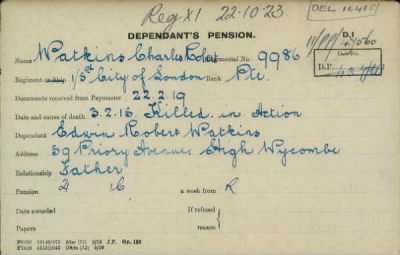 Reg XI 22.10.23
DEPENDANT'S PENSION.
Name Watkins Charles Robert Regimental No. 9986
Regiment or Ship 1/3rd City of London Rank Pte.
Documents received from Paymaster 22.2.19
Date and cause of death 3.2.15 Killed in Action
Dependant Edwin Robert Watkins
Address 59 Priory Avenue High Wycombe
Relationship Father
Pension 4 16 a week from R
Date awarded If refused
Papers reason